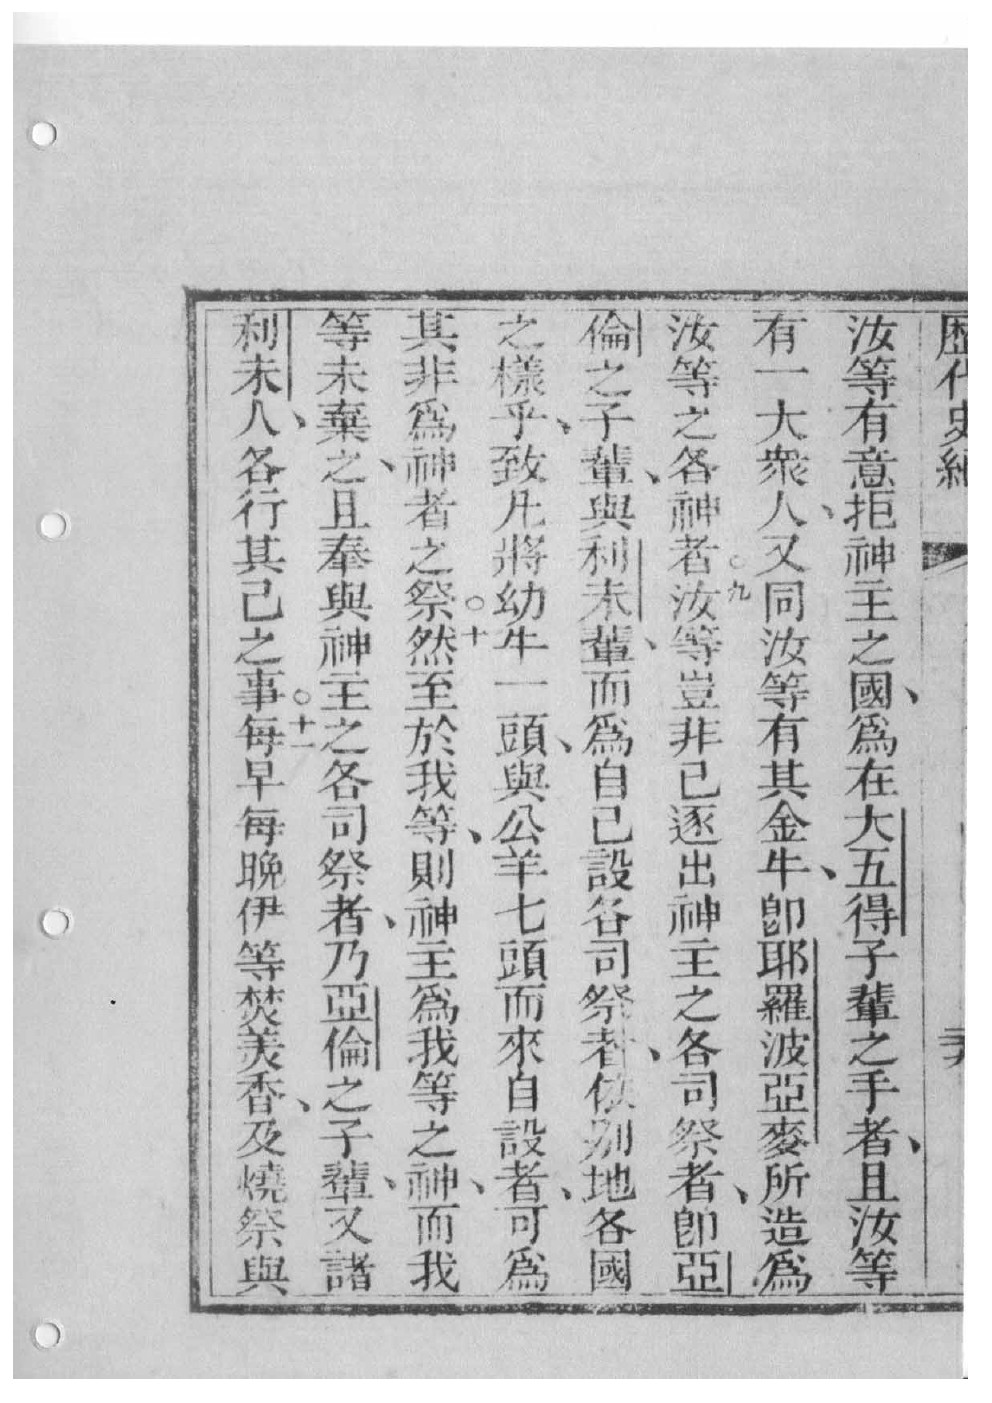 歷代史紀
汝等有意拒神主之國、爲在大五得子輩之手者、且汝等
有一大衆人、又同汝等有其金牛、卽耶羅波亞麥所造爲
汝等之各神者○九汝等豈非已逐出神主之各司祭者、卽亞
倫之子輩、與利未輩、而爲自己設各司祭者、依別地各國
之樣乎、致凡將幼牛一頭、與公羊七頭而來自設者、可爲
其非爲神者之祭○十然至於我等、則神主爲我等之神、而我
等未棄之、且奉與神主之各司祭者、乃亞倫之子輩、又諸
利未人、各行其己之事○十一每早每晚伊等焚美香、及燒祭與